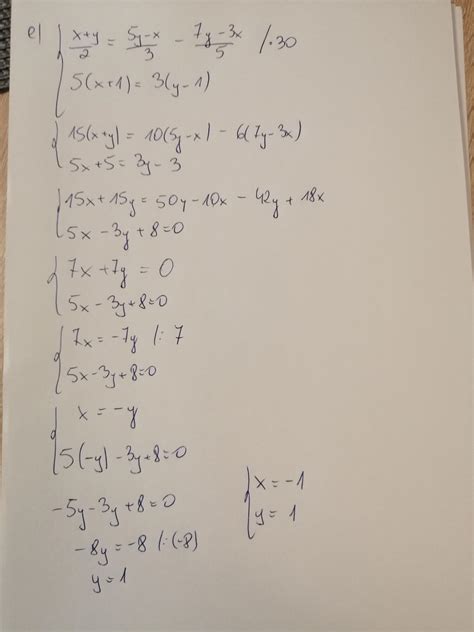 e) x+y/2 = 5y-x/3 - 7y-3x/5 /·30
5(x+1) = 3(y-1)
15(x+y) = 10(5y-x) - 6(7y-3x)
5x+5 = 3y-3
15x+15y = 50y-10x - 42y + 18x
5x - 3y + 8 = 0
7x + 7y = 0
5x - 3y + 8 = 0
7x = -7y /: 7
5x - 3y + 8 = 0
x = -y
5(-y) - 3y + 8 = 0
-5y - 3y + 8 = 0
-8y = -8 /: (-8)
y = 1
x = -1
y = 1